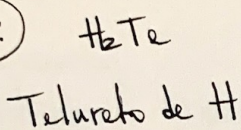 H₂Te
Telureto de H